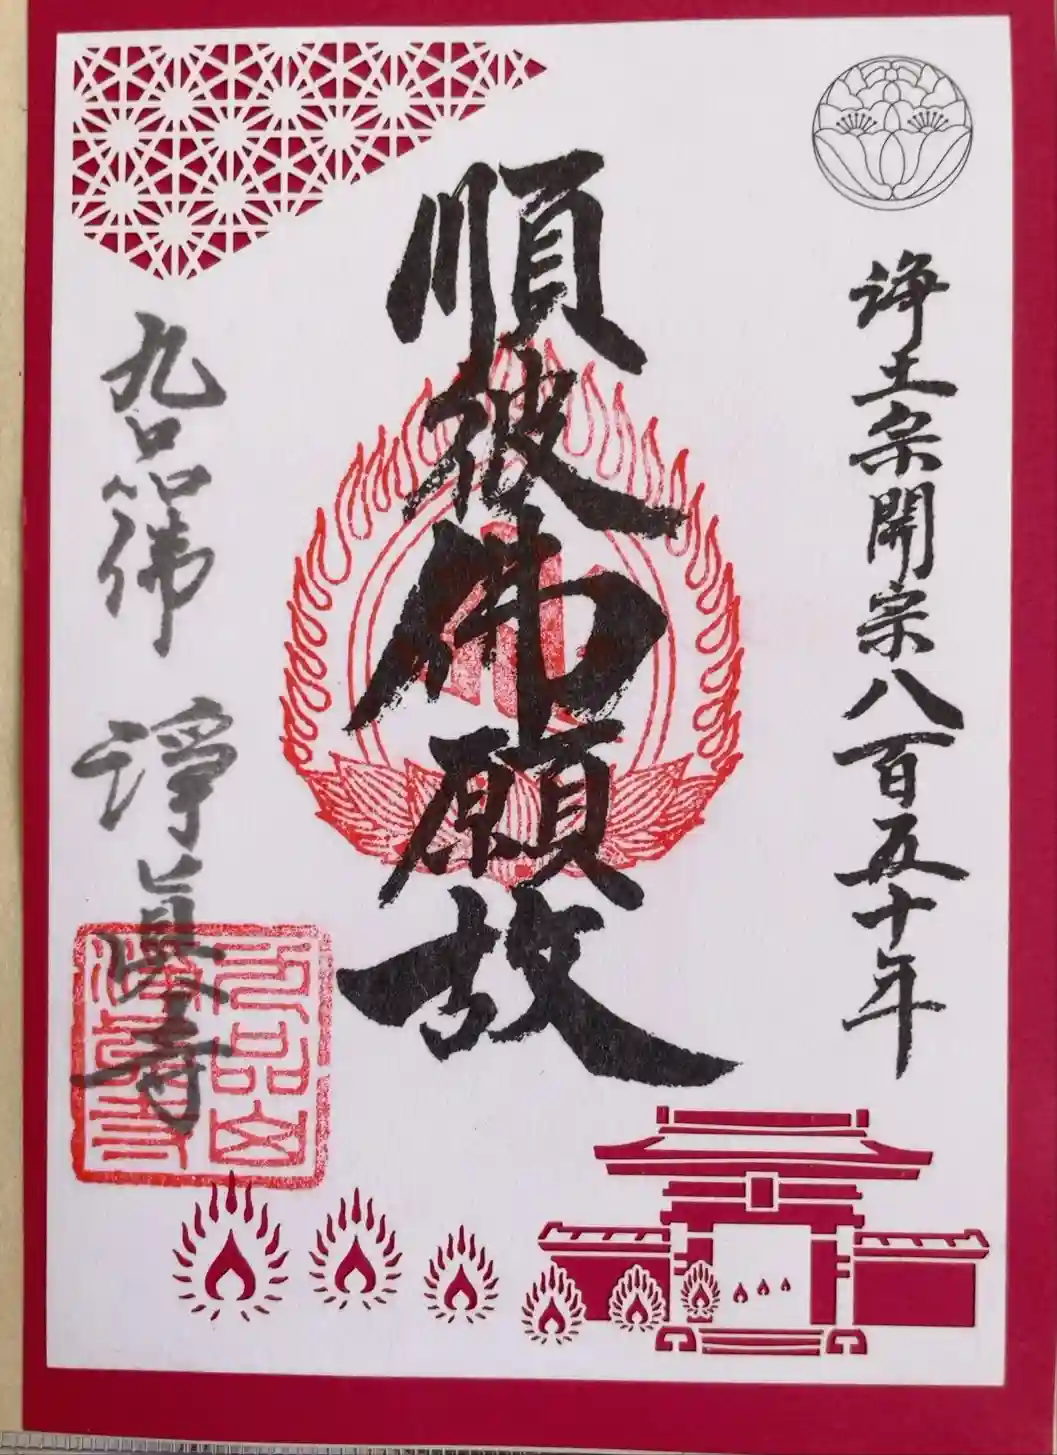 浄土宗開宗八百五十年
順彼佛願故
九品佛 淨眞寺